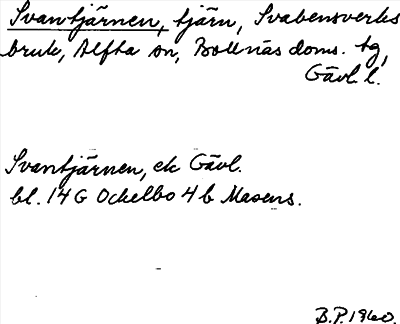 Svantjärnen, tjärn, Svabensverks
bruk, Alfta sn, Bollnäs doms. tg,
Gävl. l.
Svantjärnen, ek Gävl.
bl. 14 G Ockelbo 4 b Masens.
B.P. 1960.